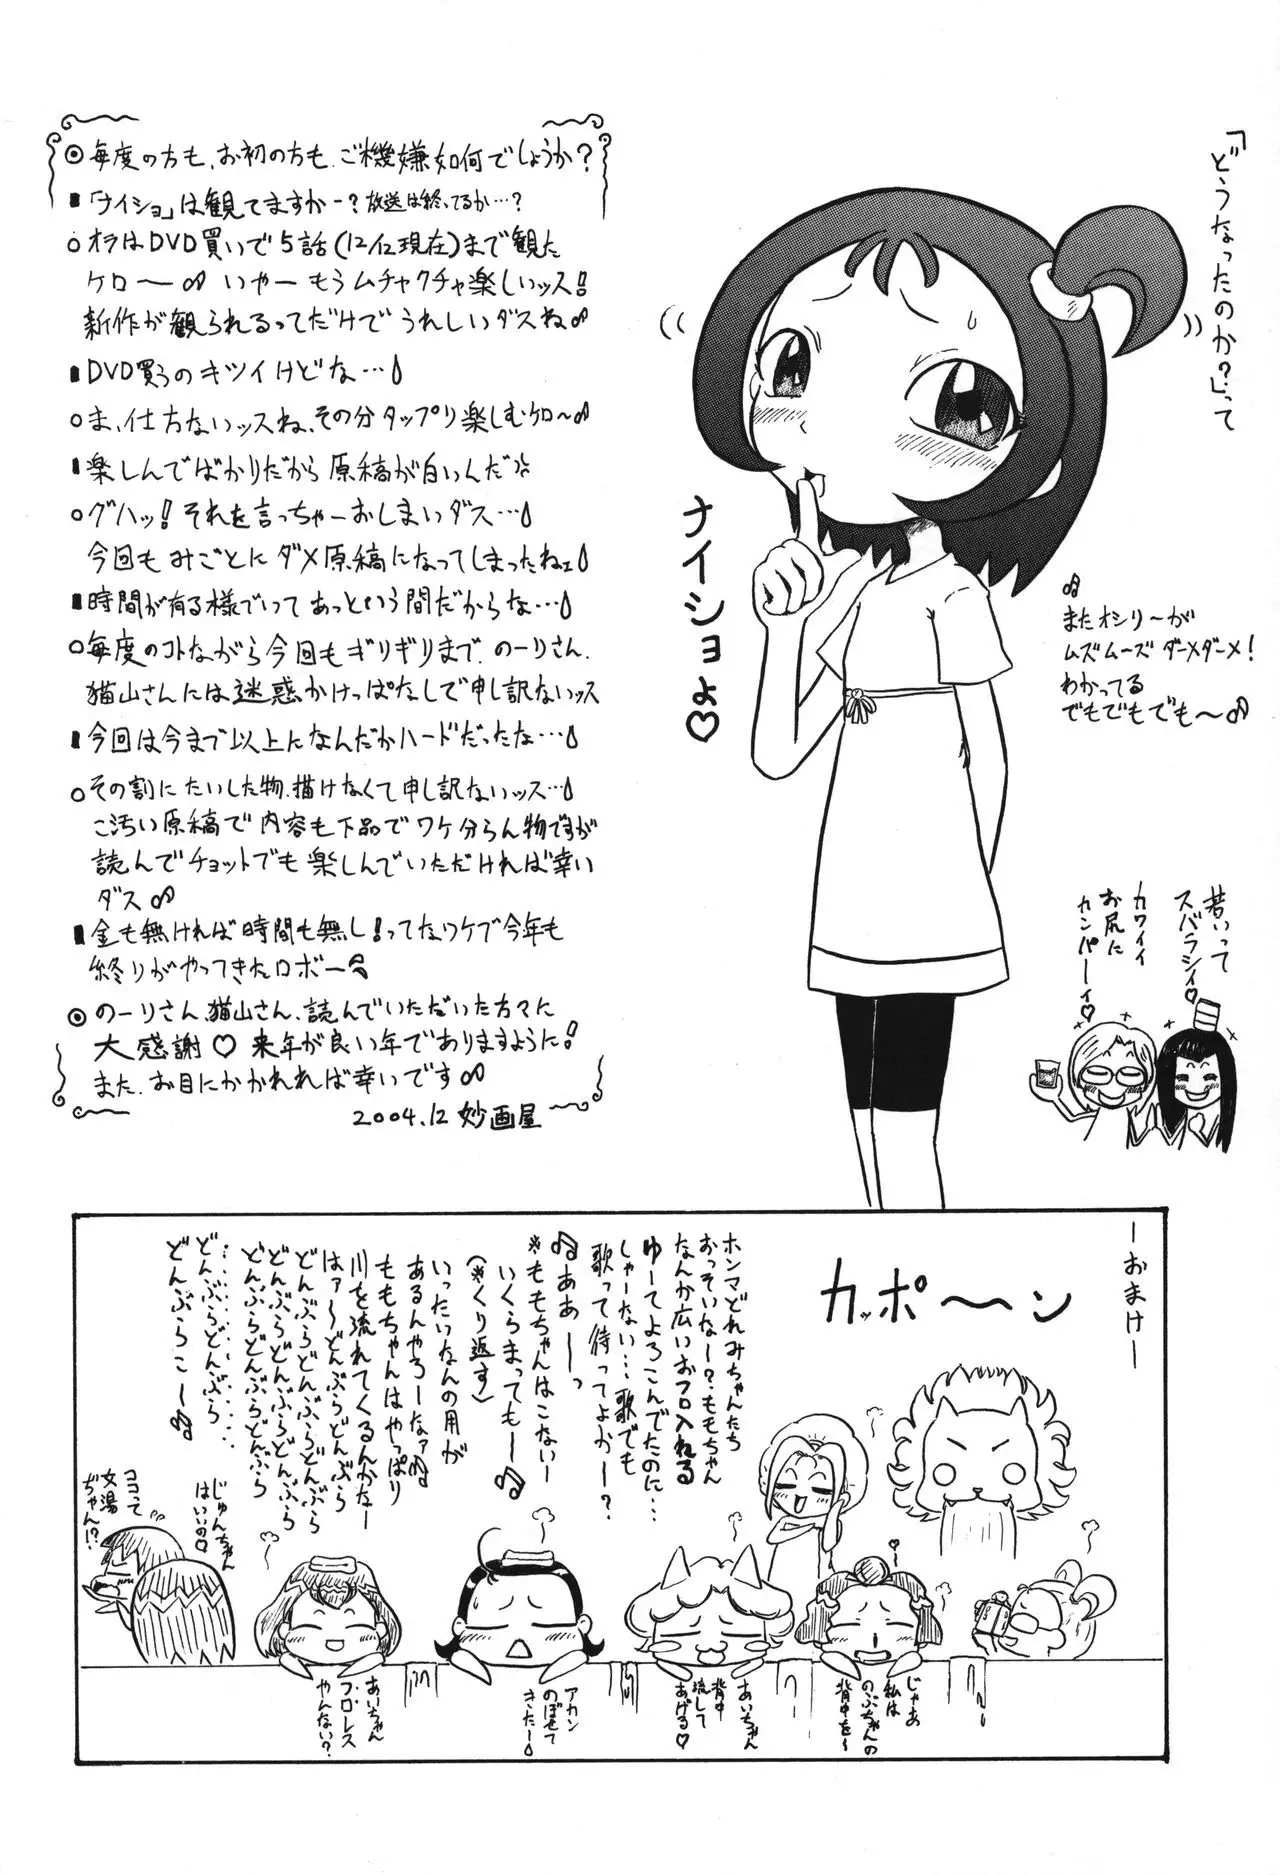 「どうなったのか？」って
◎毎度の方も、お初の方も、ご機嫌如何でしょうか？
■「ナイショ」は観てますかー？放送は終ってるか…？
○オラはDVD買いで5話(12/12現在)まで観た
ケロ〜 いやー もうムチャクチャ楽しいッス！
新作が観られるってだけでうれしいダスね
■DVD買うのキツイけどな…
○ま、仕方ないッスね、その分タップリ楽しむケロ〜
■楽しんでばかりだから原稿が白いんだ
○グハッ！それを言っちゃーおしまいダス…
今回もみごとにダメ原稿になってしまったねェ
■時間が有る様でいってあっという間だからな…
○毎度のコトながら今回もギリギリまで、のーりさん、
猫山さんには迷惑かけっぱなしで申し訳ないッス
■今回は今まで以上になんだかハードだったな…
○その割にたいした物、描けなくて申し訳ないッス…
こ汚い原稿で内容も下品でワケ分らん物ですが
読んでチョットでも楽しんでいただければ幸い
ダス
■金も無ければ時間も無し！ってなワケで今年も
終りがやってきたロボー
◎のーりさん、猫山さん、読んでいただいた方々に
大感謝♡ 来年が良い年でありますように！
また、お目にかかれれば幸いです
2004.12 妙画屋
ナイショよ♡
ーおまけー
カッポ〜〜ン
ホンマどれみちゃんたち
おっそいなー？、ももちゃん
なんか広いおフロ入れる
ゆーてよろこんでたのに…
しゃーない…歌でも
歌って待ってよかー？
ああーーっ
※ももちゃんはこないー
いくらまってもー
(※くり返す)
いったいなんの用が
あるんやろーなァ
ももちゃんはやっぱり
川を流れてくるんかなー
はァ〜どんぶらどんぶら
どんぶらどんぶらどんぶら
どんぶらどんぶらどんぶら
どんぶらどんぶらどんぶら
……………………
どんぶらどんぶら
どんぶらこー
じゅんちゃん
はいいの
ココって
女湯
ぢゃん！？
じゃあ
私は
のぶちゃんの
背中を〜
あいちゃん
背中
流して
あげる♡
アカン
のぼせて
きたー
あいちゃん
プロレス
やんない？